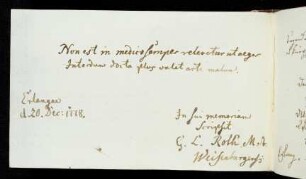 Non est in medico semper relevetur ut aeger
Interdum docta plus valet arte malum.
Erlangae
d. 20. Dec. 1778.
In sui memoriam
scripsit
G. L. Roth M. D.
Weissenburgensis